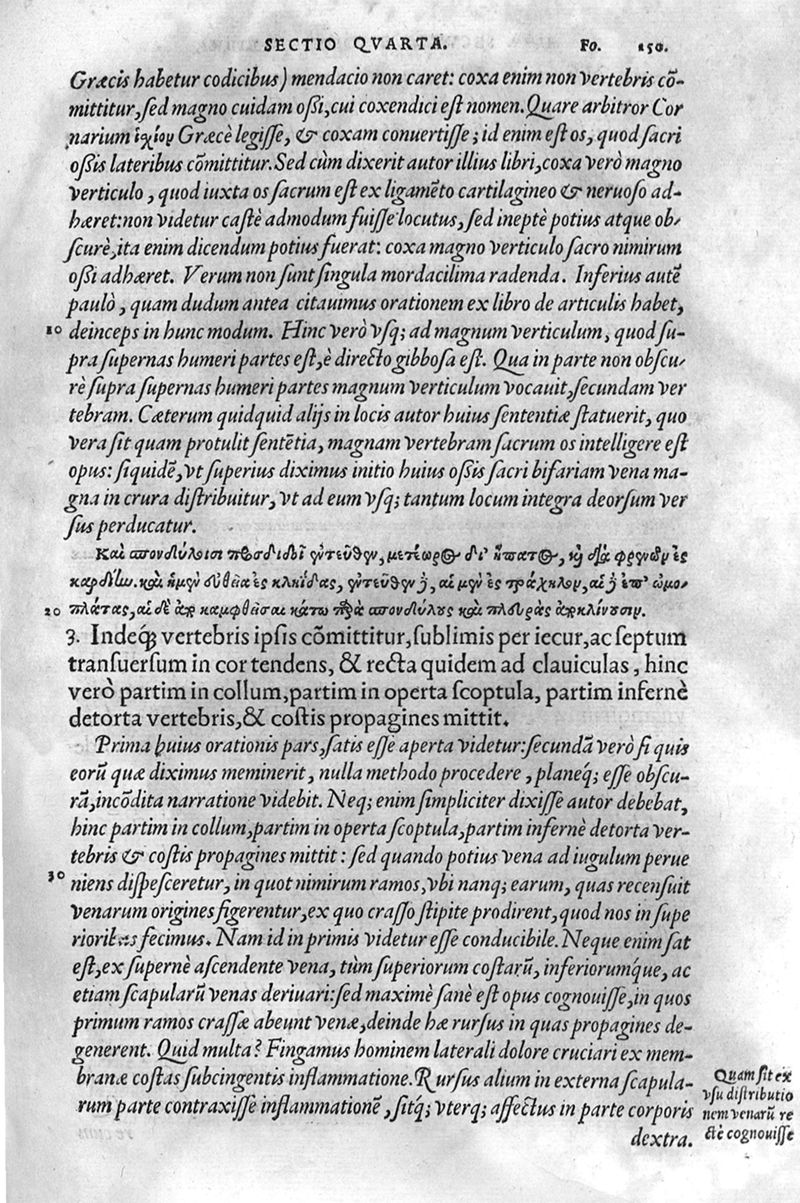 SECTIO QVARTA. Fo. 150.
Græcis habetur codicibus) mendacio non caret: coxa enim non vertebris cõ-
mittitur, sed magno cuidam ossi, cui coxendici est nomen. Quare arbitror Cor
narium ἰχίον Græcè legisse, & coxam conuertisse; id enim est os, quod sacri
ossis lateribus cõmittitur. Sed cùm dixerit autor illius libri, coxa verò magno
verticulo, quod iuxta os sacrum est ex ligamẽto cartilagineo & neruoso ad-
hæret: non videtur castè admodum fuisse locutus, sed ineptè potius atque ob-
scurè, ita enim dicendum potius fuerat: coxa magno verticulo sacro nimirum
ossi adhæret. Verum non sunt singula mordacilima radenda. Inferius autẽ
paulò, quam dudum antea citauimus orationem ex libro de articulis habet,
10 deinceps in hunc modum. Hinc verò vsq; ad magnum verticulum, quod su-
pra supernas humeri partes est, è directo gibbosa est. Qua in parte non obscu-
rè supra supernas humeri partes magnum verticulum vocauit, secundam ver
tebram. Cæterum quidquid alijs in locis autor huius sententiæ statuerit, quo
vera sit quam protulit sentẽtia, magnam vertebram sacrum os intelligere est
opus: siquidẽ, vt superius diximus initio huius ossis sacri bifariam vena ma-
gna in crura distribuitur, vt ad eum vsq; tantum locum integra deorsum ver
sus perducatur.
Καὶ σπονδύλοισι προσδιδοῖ ἐντεῦθεν, μετέωρος δι' ἥπατος, καὶ διὰ φρενῶν ἐς
καρδίην. καὶ ᾔμεν εὐθεῖα ἐς κληῖδας, ἐντεῦθεν δὲ, αἱ μὲν ἐς τράχηλον, αἱ δὲ ἐπ' ὠμο-
20 πλάτας, αἱ δὲ ἀποκαμφθεῖσαι κάτω παρὰ σπονδύλους καὶ πλευρὰς ἀποκλίνουσιν.
3. Indeq̃ vertebris ipsis cõmittitur, sublimis per iecur, ac septum
transuersum in cor tendens, & recta quidem ad clauiculas, hinc
verò partim in collum, partim in operta scoptula, partim infernè
detorta vertebris, & costis propagines mittit.
Prima huius orationis pars, satis esse aperta videtur: secundã verò si quis
eorũ quæ diximus meminerit, nulla methodo procedere, planeq́; esse obscu-
rã, incõdita narratione videbit. Neq; enim simpliciter dixisse autor debebat,
hinc partim in collum, partim in operta scoptula, partim infernè detorta ver-
tebris & costis propagines mittit: sed quando potius vena ad iugulum perue
30 niens dispesceretur, in quot nimirum ramos, vbi nanq; earum, quas recensuit
venarum origines figerentur, ex quo crasso stipite prodirent, quod nos in supe
rioribus fecimus. Nam id in primis videtur esse conducibile. Neque enim sat
est, ex supernè ascendente vena, tùm superiorum costarũ, inferiorumq́ue, ac
etiam scapularũ venas deriuari: sed maximè sanè est opus cognouisse, in quos
primum ramos crassæ abeunt venæ, deinde hæ rursus in quas propagines de-
generent. Quid multa? Fingamus hominem laterali dolore cruciari ex mem-
branæ costas subcingentis inflammatione. Rursus alium in externa scapula-
rum parte contraxisse inflammationẽ, sitq́; vterq; affectus in parte corporis
dextra.
Quam sit ex
vsu distributio
nem venarũ re
ctè cognouisse